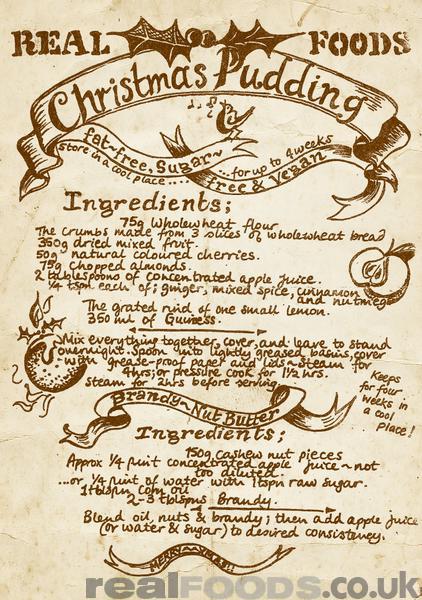 REAL FOODS
Christmas Pudding
fat~free, Sugar~
free & Vegan
Store in a cool place....
...for up to 4 weeks
Ingredients;
75g Wholewheat flour
The crumbs made from 3 slices of wholewheat bread
350g dried mixed fruit.
50g natural coloured cherries.
75g Chopped almonds.
2 tablespoons of concentrated apple juice
1/4 tspn each of; ginger, mixed spice, cinnamon
and nutmeg
The grated rind of one small lemon.
350 ml of Guiness.
Mix everything together, cover, and leave to stand
overnight. Spoon into lightly greased basins, cover
with grease-proof paper and lids~Steam for
4hrs, or pressure cook for 1½ hrs.
Steam for 2hrs before serving.
Keeps
for four
weeks in
a cool
Place!
Brandy~Nut Butter
Ingredients;
150g cashew nut pieces
Approx ¼ pint concentrated apple juice ~ not
too diluted.
...or, ¼ pint of water with 1tspn raw sugar.
1 tblspn corn oil
2-3 tblspns Brandy.
Blend oil, nuts & brandy; then add apple juice
(or water & sugar) to desired consistency.
realFOODS.co.uk